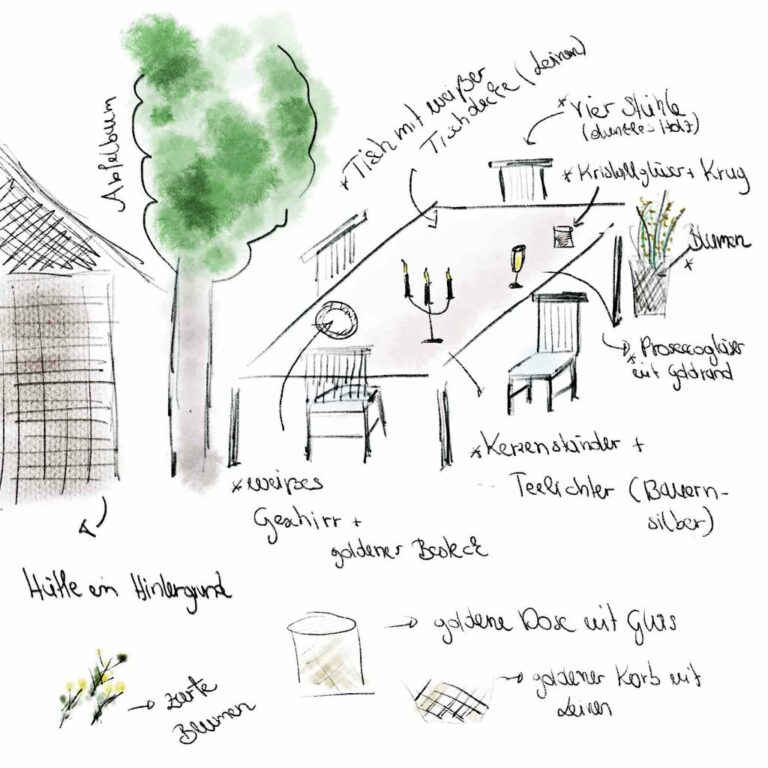 Apfelbaum
* Tisch mit weißer
Tischdecke (Leinen)
* vier Stühle
(dunkles Holz)
* Kristallgläser + Krug
Blumen
*
* Proseccogläser
mit Goldrand
* Kerzenständer +
Teelichter (Bauern-
silber)
* weißes
Geschirr +
goldenes Besteck
Hütte im Hintergrund
goldene Dose mit Glas
goldener Korb mit
Leinen
zarte
Blumen